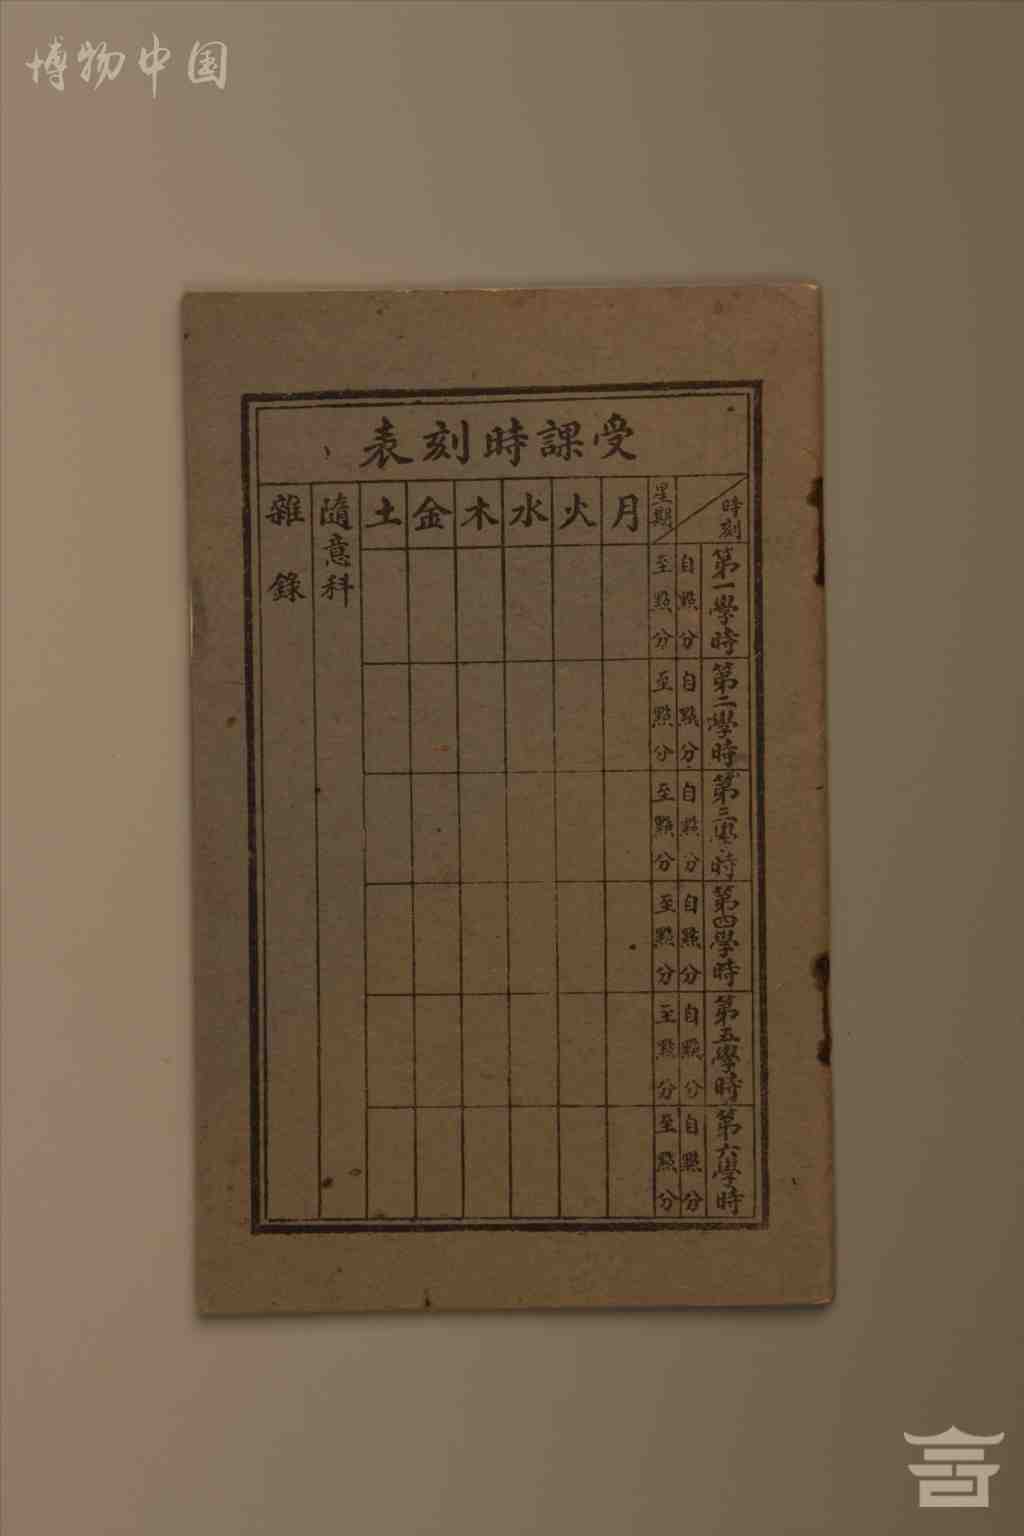 博物中国
受課時刻表
時刻
星期
月
火
水
木
金
土
隨意科
雜錄
第一學時
自點分
至點分
第二學時
自點分
至點分
第三學時
自點分
至點分
第四學時
自點分
至點分
第五學時
自點分
至點分
第六學時
自點分
至點分